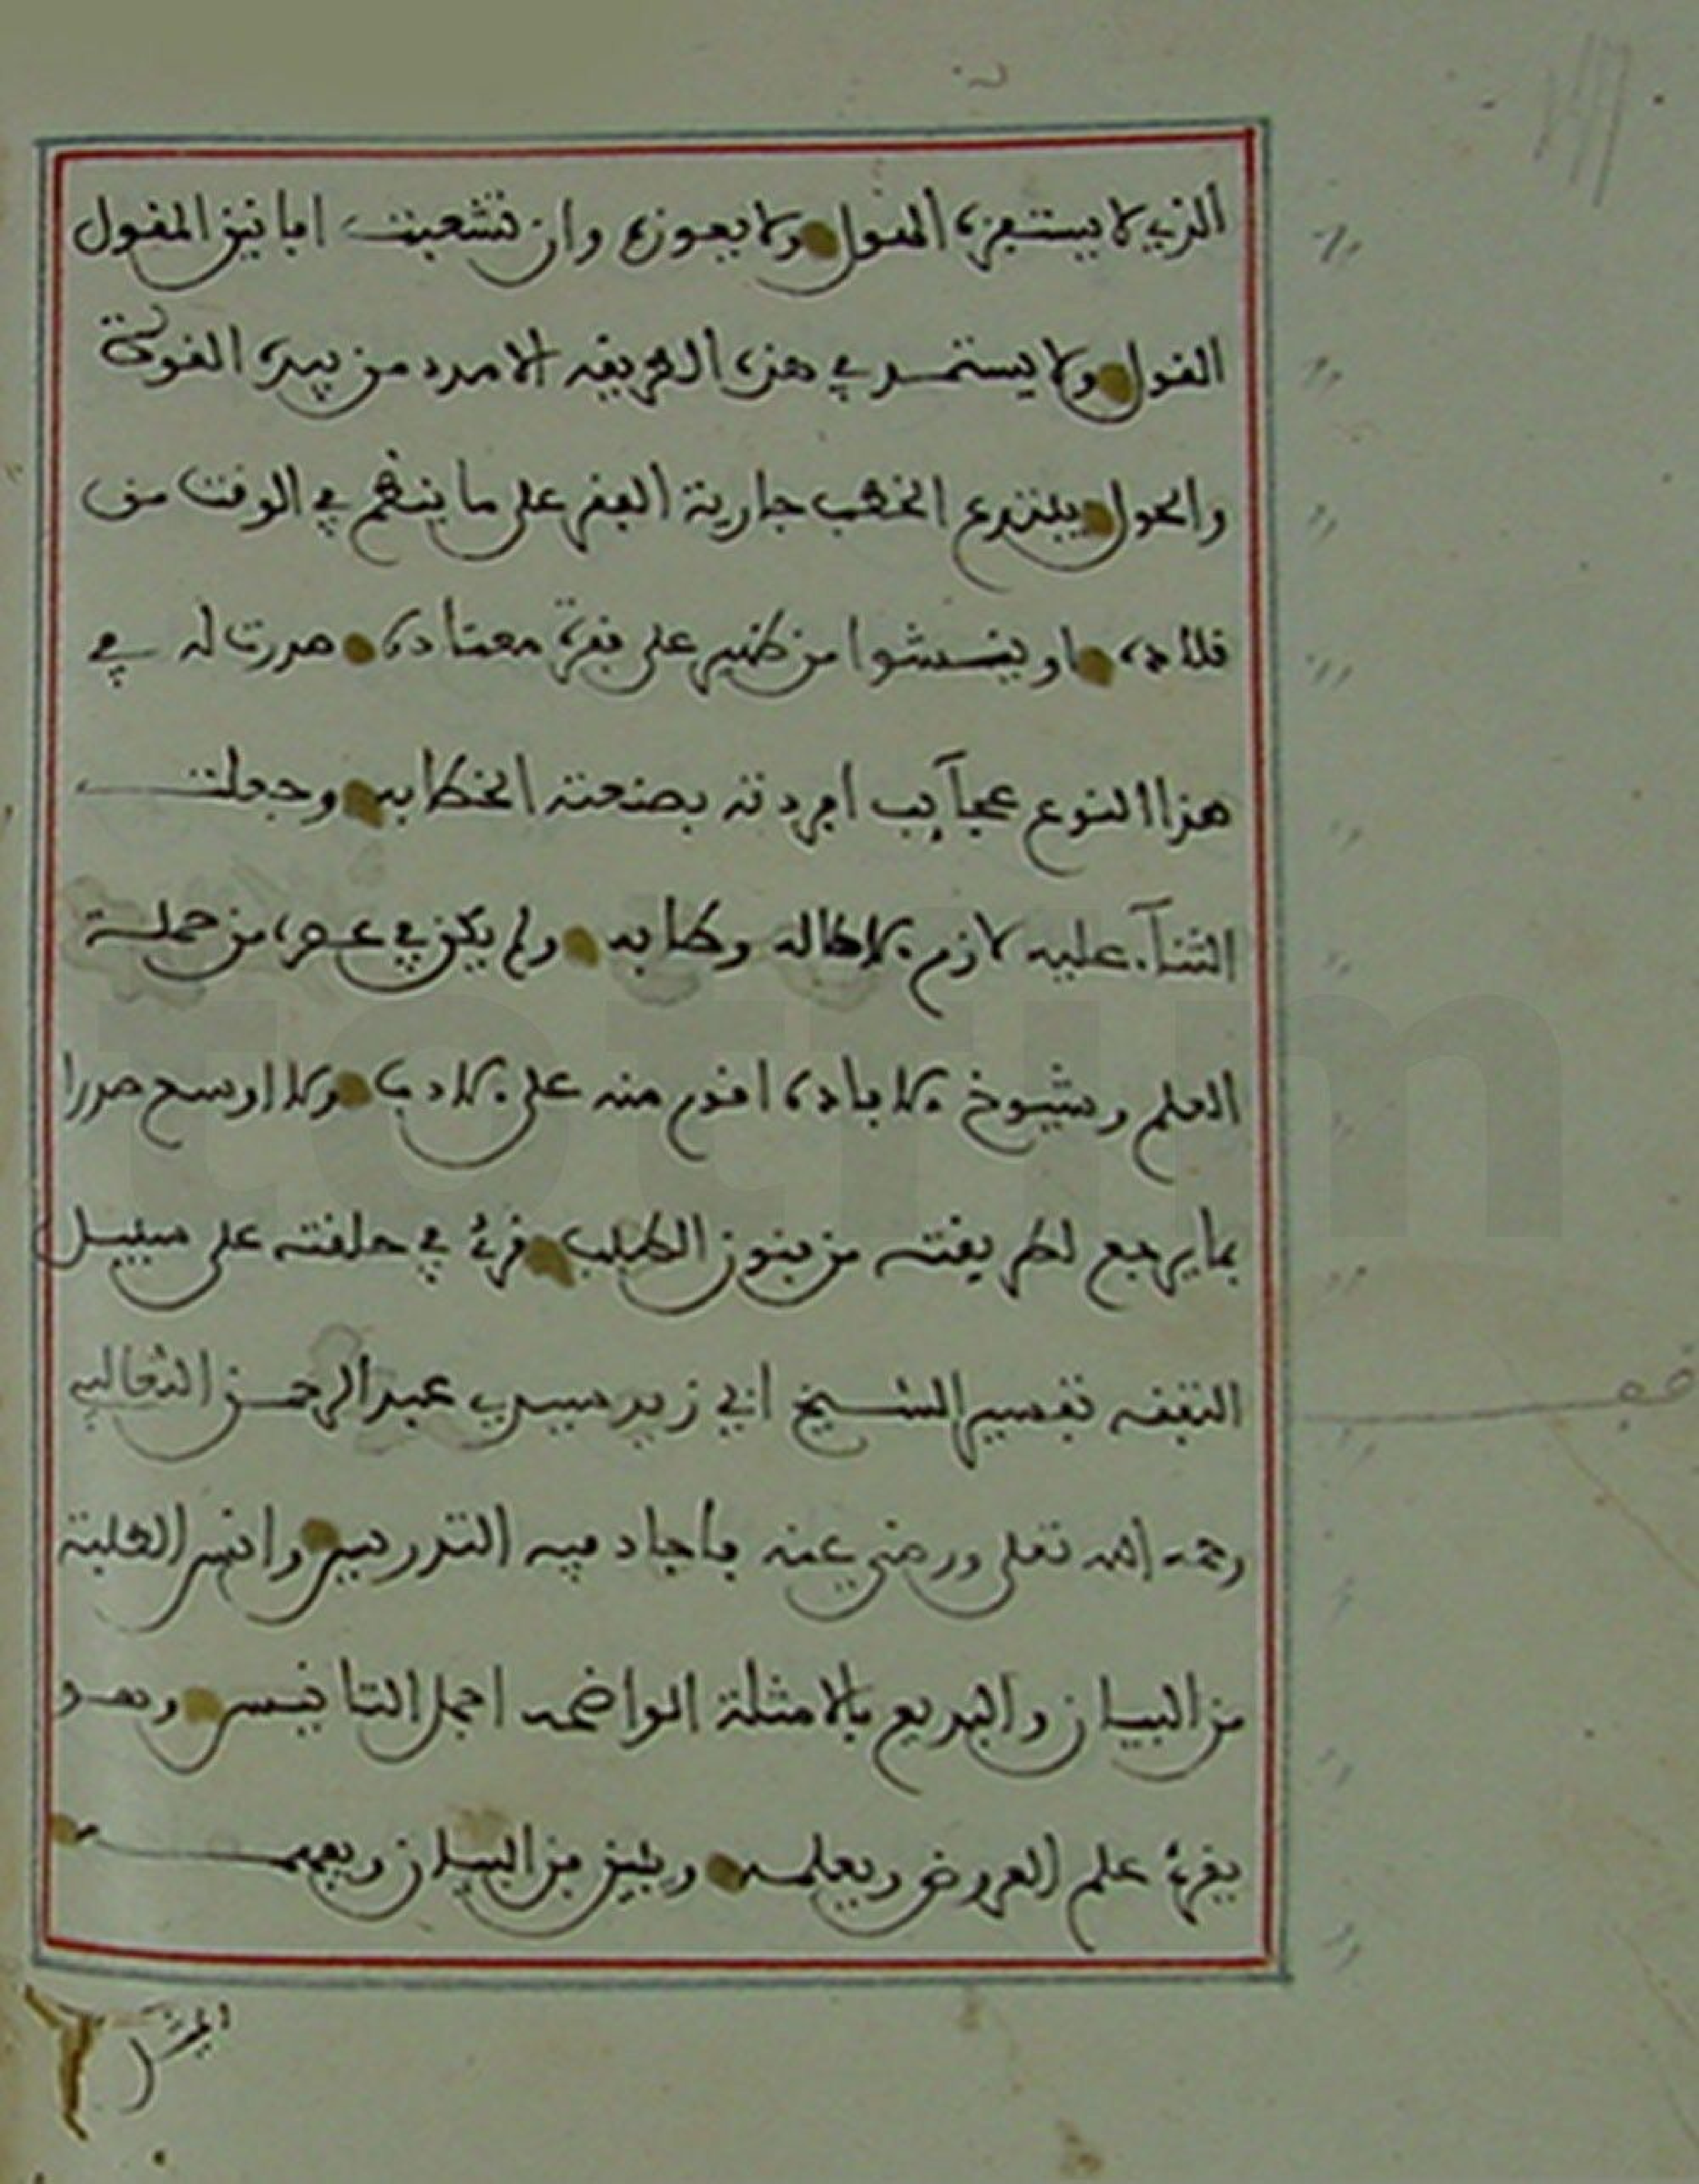 الذي لا يستفزه القول ولا يعوزه وان تشعبت افانين المقول
القول ولا يستمر في هذه الطريقه الا مرد من بيده القوة
والحول يبتدع الخطب جارية الفقر على ما ينظم في الوقت من
قلاده او ينشئوا من ظهير على فقرة معتاده صدرت له في
هذا النوع عجآيب افردته بصنعته الخطابه وجعلت
الثنآء عليه لازم الاطاله وطابه ولم يكن في عصره من حملة
العلم وشيوخ الاباده اقوم منه على الادب ولا اوسع صدرا
بما يرجع لطريقته من فنون الطلب قرئ في حلقته على سبيل
التفقه تفسير الشيخ ابي زيد سيدي عبد الرحمن الثعالبي
رحمه الله تعلى ورضي عنه فاجاد فيه التدريس وانس الطلبة
من البيان والبديع بالامثلة الواضحه اجمل التانيس وهو
يقرئ علم العروض ويعلمه ويلين من البيان ويفهمـ